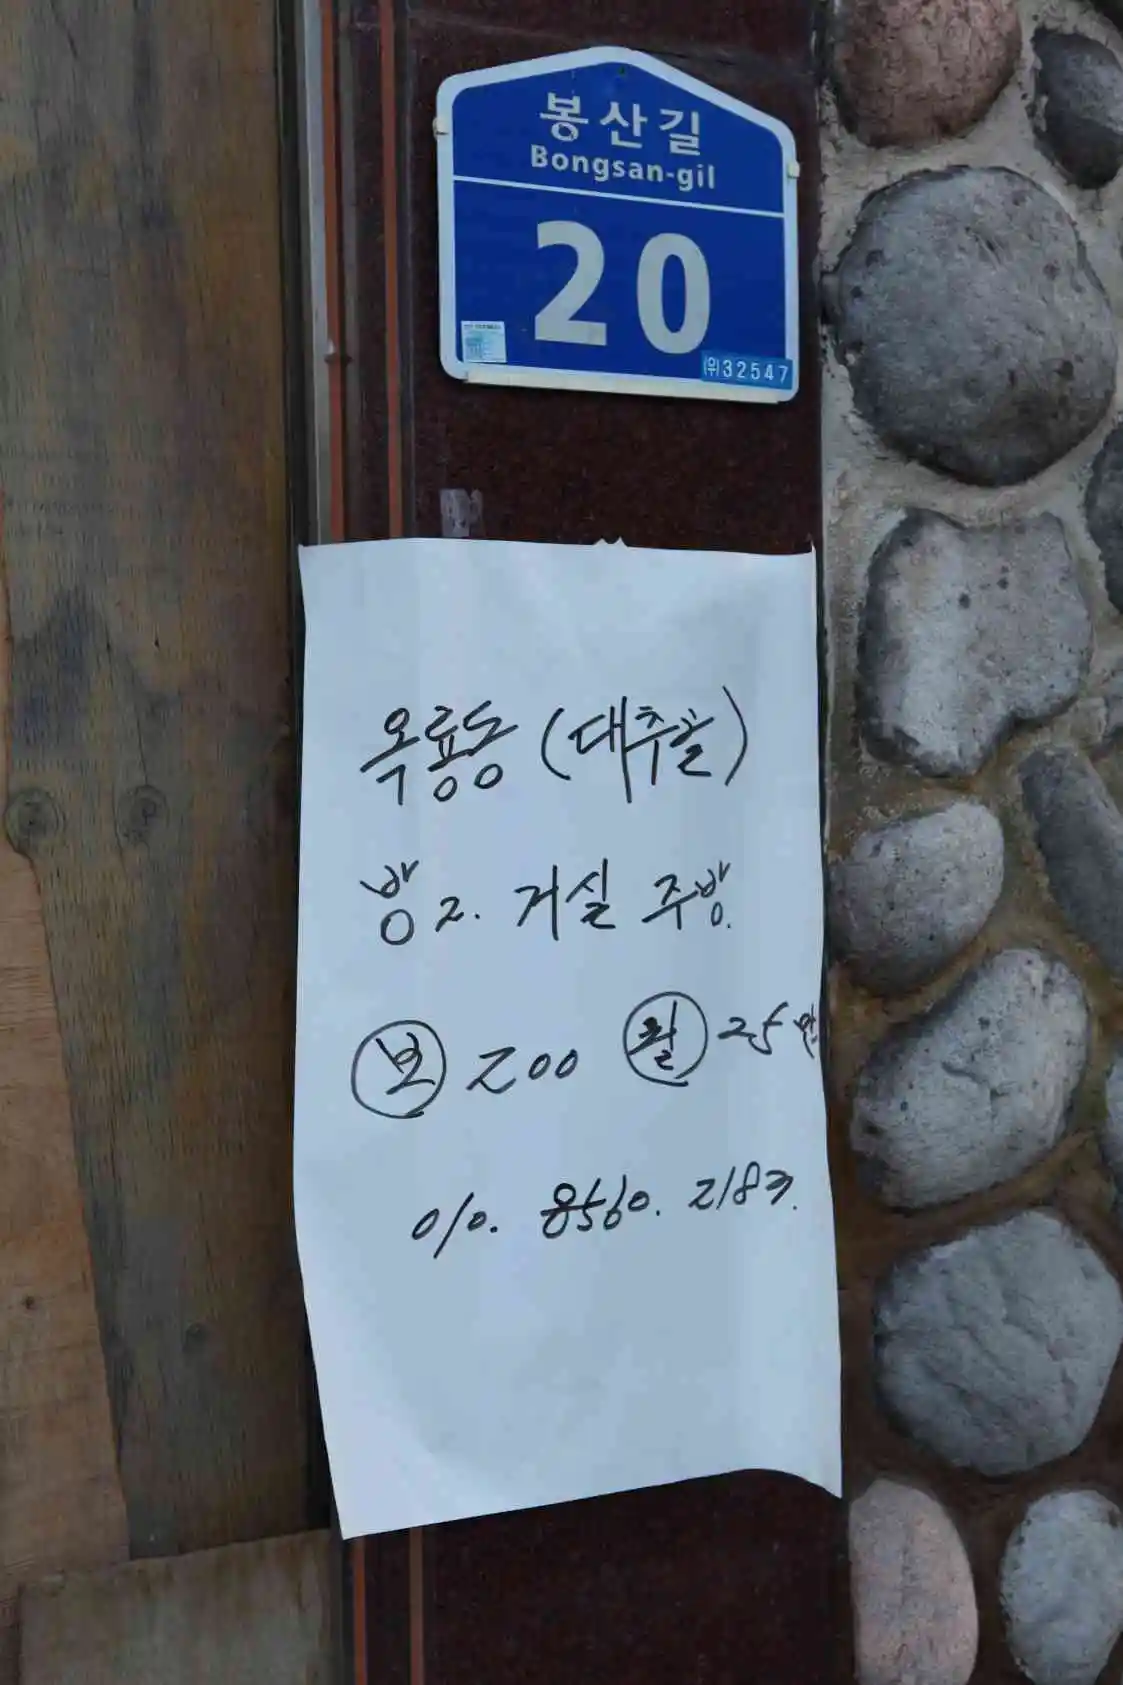 봉산길
Bongsan-gil
20
(우)32547
옥룡동 (대추골)
방 2. 거실 주방.
보 200 월 25만
010. 8560. 2183.